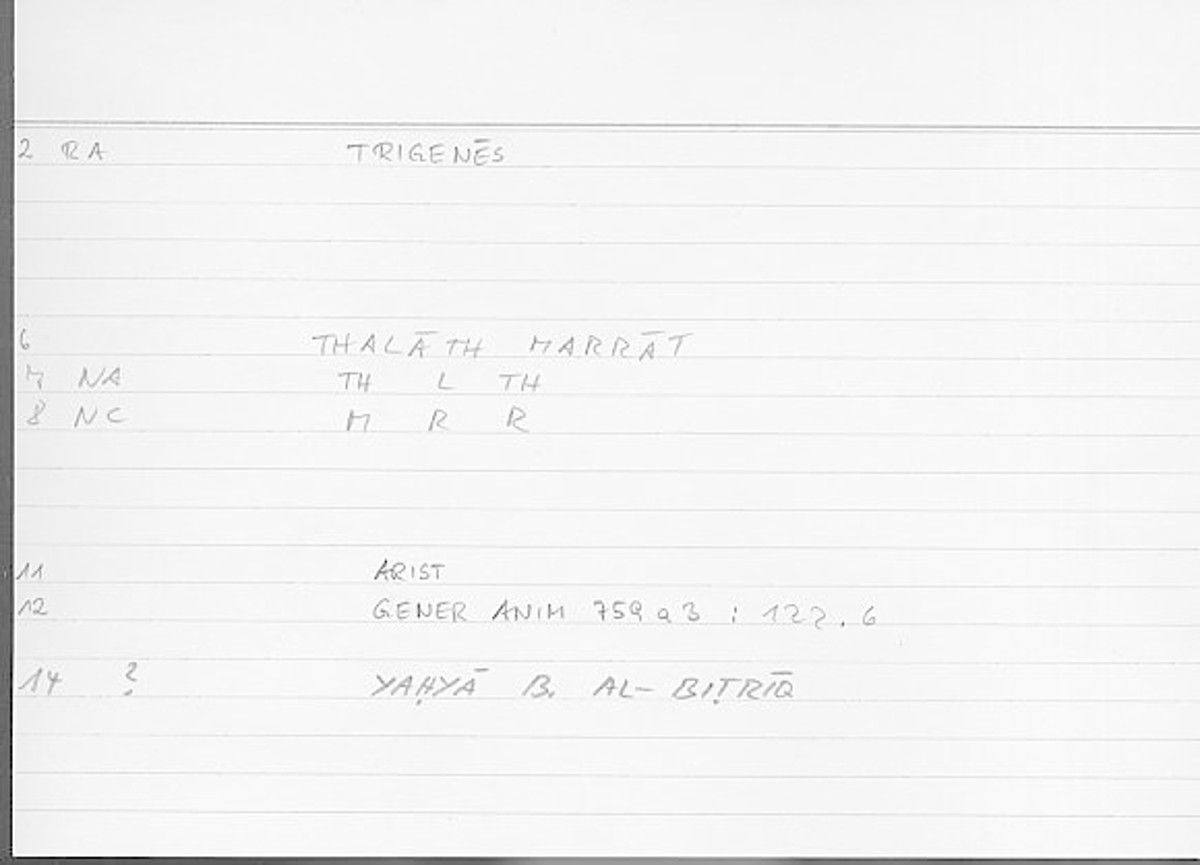 2 RA TRIGENĒS
6 THALĀTH MARRĀT
7 NA TH L TH
8 NC M R R
11 ARIST
12 GENER ANIM 759 a 3 : 122.6
14 ? YAḤYĀ B. AL-BIṬRĪQ